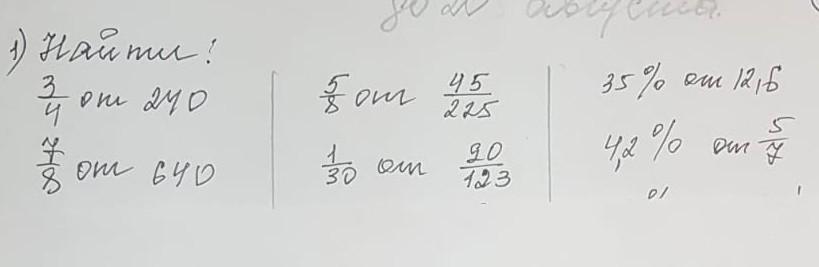 1) Найти:
3/4 от 240
7/8 от 640
5/8 от 45/225
1/30 от 90/123
35% от 12,6
4,2% от 5/7